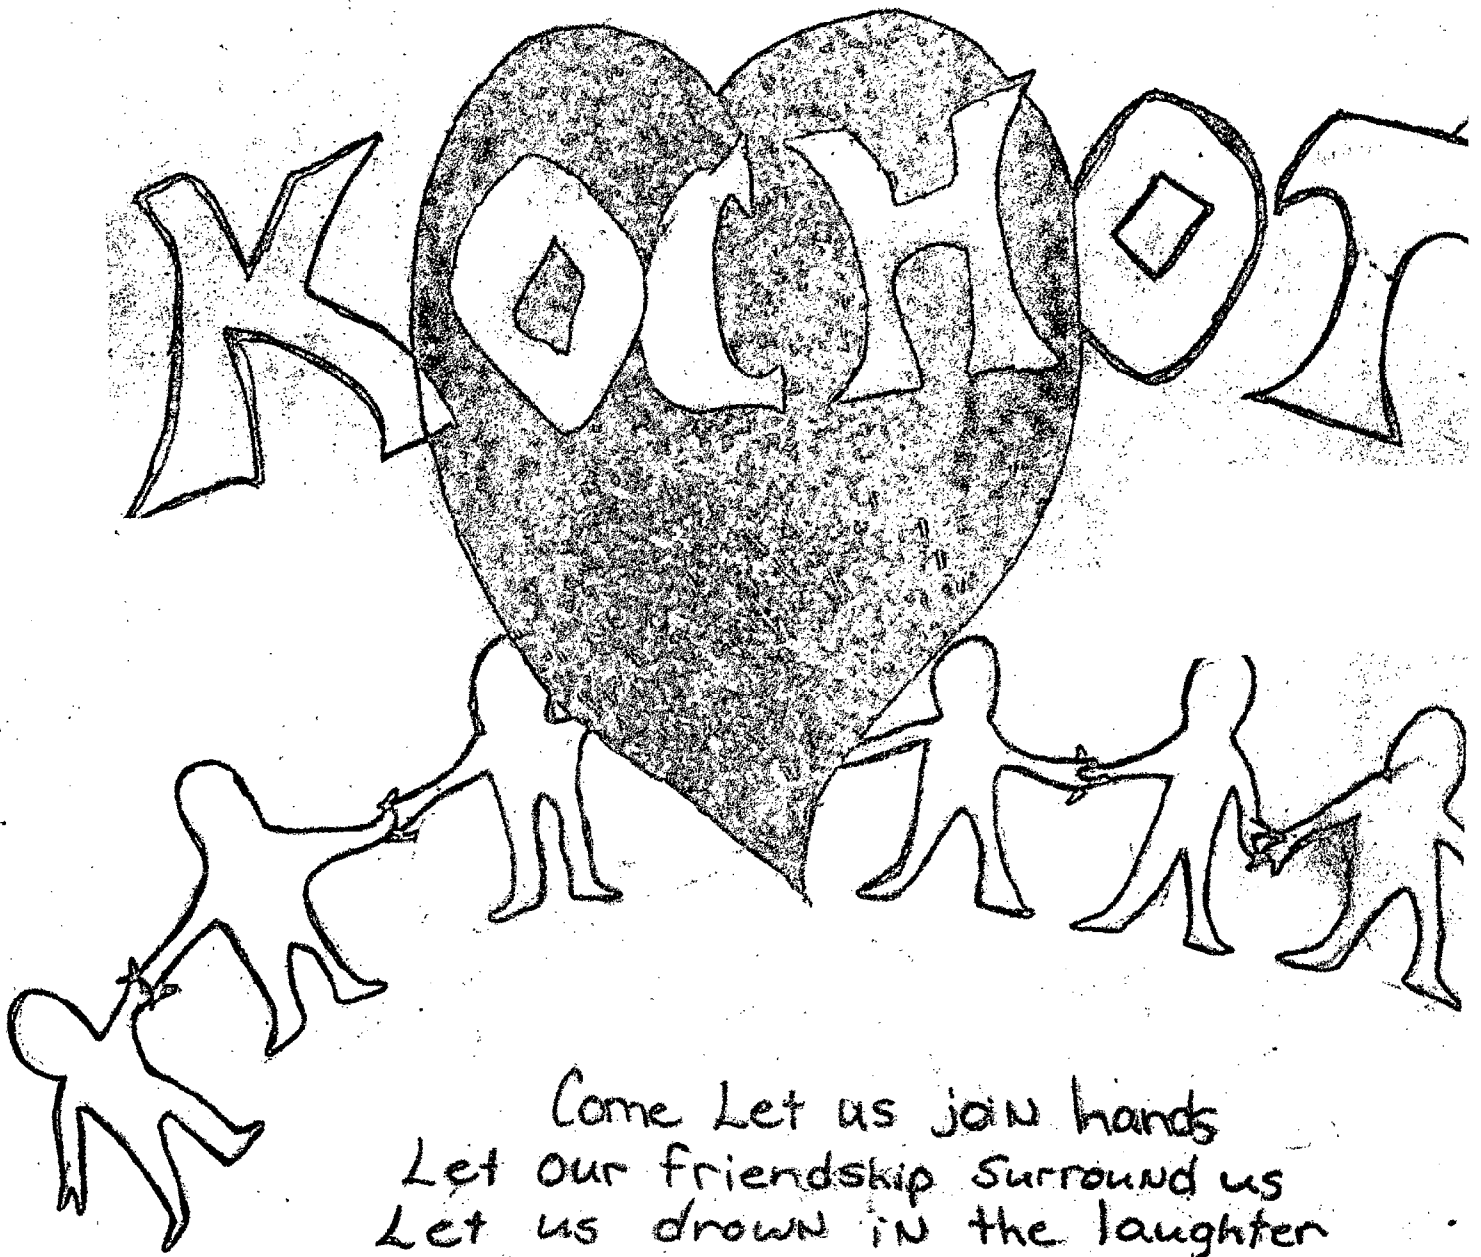 KOCHOT
Come Let us join hands
Let our friendship surround us
Let us drown in the laughter